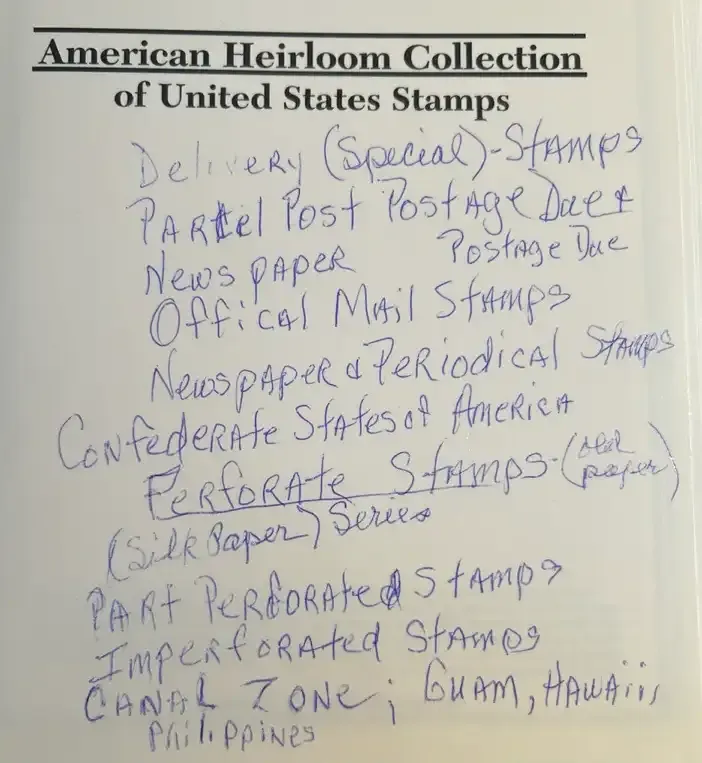 American Heirloom Collection
of United States Stamps
Delivery (Special)-Stamps
Parcel Post Postage Due &
Newspaper Postage Due
Offical Mail Stamps
Newspaper & Periodical Stamps
Confederate States of America
Perforate Stamps-(old paper)
(Silk Paper) Series
Part Perforated Stamps
Imperforated Stamps
Canal Zone; Guam, Hawaii,
Philippines